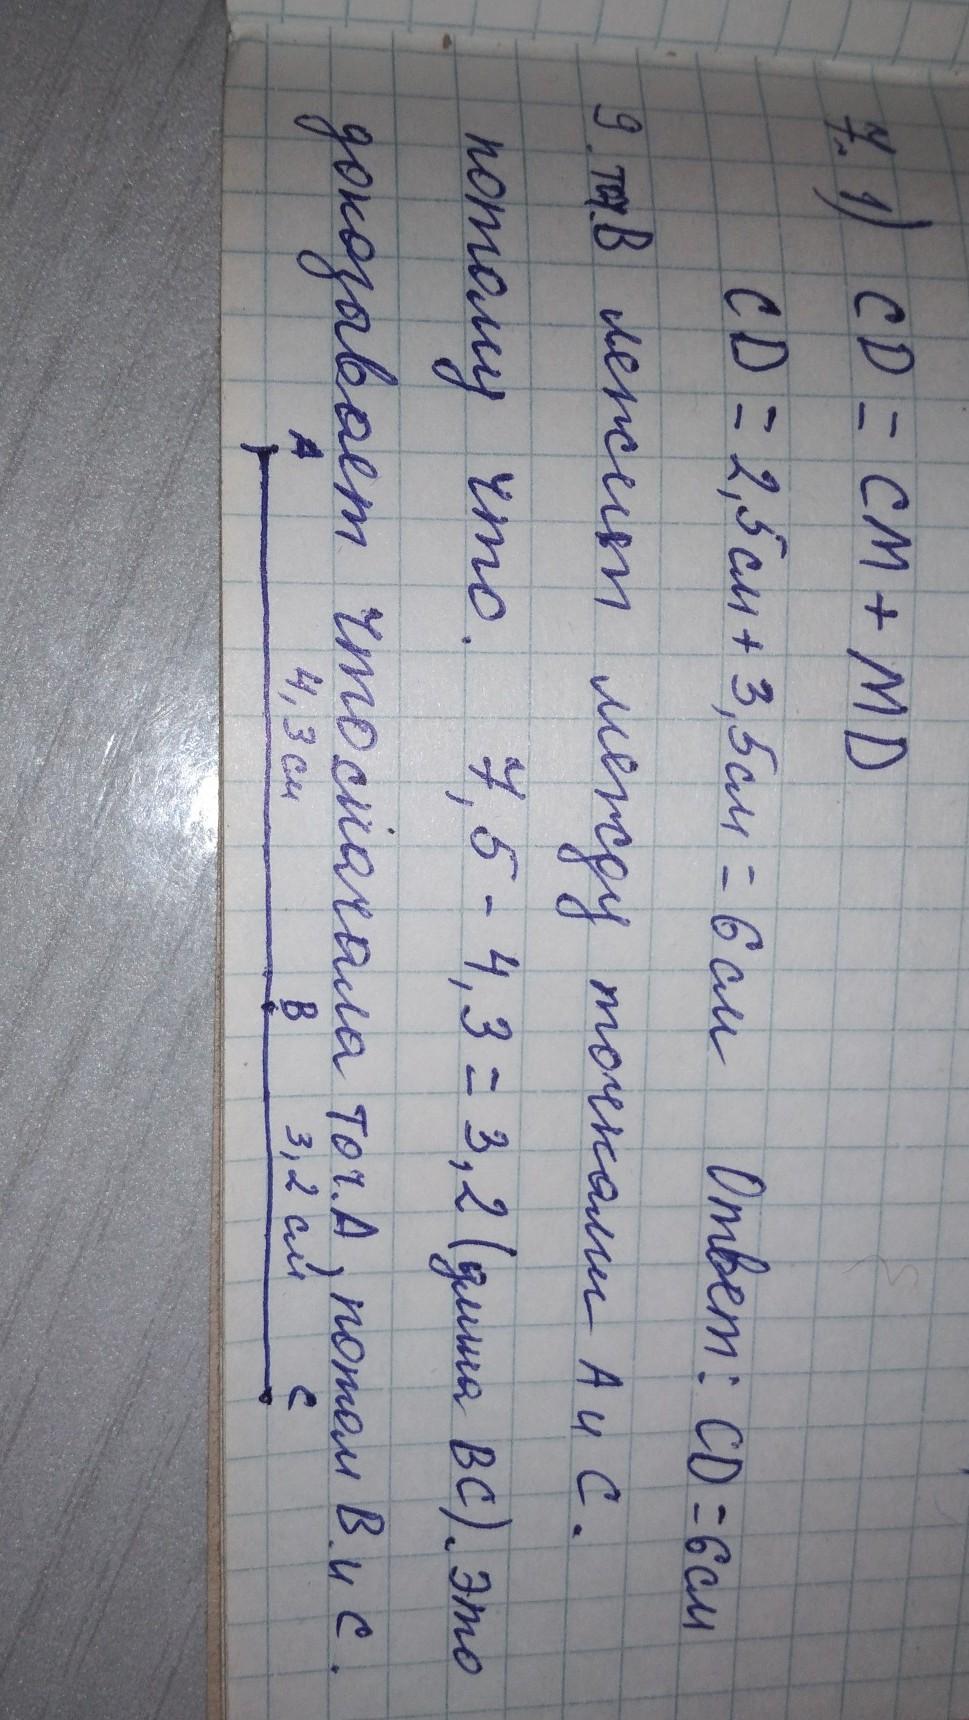 7. 1) CD = CM + MD
CD = 2,5см + 3,5см = 6см Ответ: CD = 6см
9. точ. В лежит между точками А и С.
потому что. 7,5 - 4,3 = 3,2 (длина ВС). Это
доказывает что сначала точ. А, потом В и С.
А 4,3см В 3,2см С